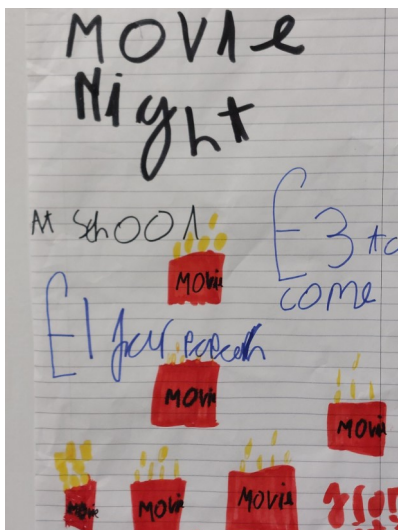 MOVIe
Night
At SchOOl
£3 to
come
£1 for popcorn
MOVie
MOVie
MOVie
MOVie
MOVie
MOVie